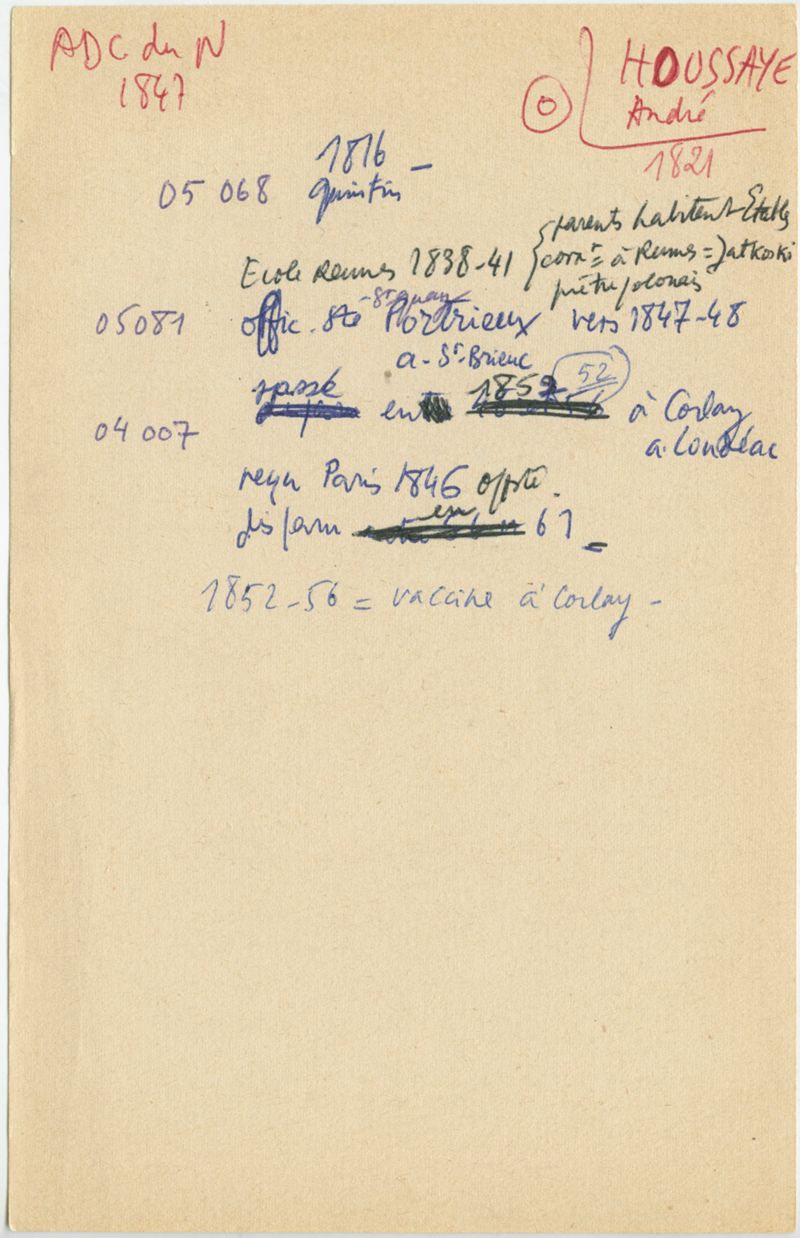 ADC du N
1847
HOUSSAYE
O
André
1821
1816 –
05 068 Quintin
parents habitent Etables
Ecole Rennes 1838-41
corr<sup>t</sup> = à Rennes = Jatkoski
prêtre polonais
-St Quay
05081 offic. sté Portrieux vers 1847-48
a - St-Brieuc
passé en 1852 52 à Corlay
04 007
a. Loudéac
reçu Paris 1846 offsté.
dispam en 61 –
1852-56 = vaccine à Corlay –